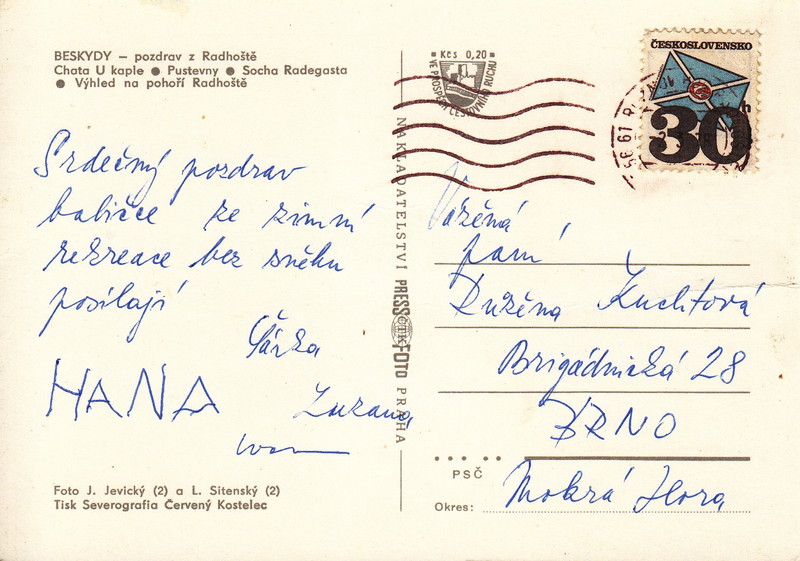 BESKYDY — pozdrav z Radhoště
Chata U kaple ● Pustevny ● Socha Radegasta
● Výhled na pohoří Radhoště
Srdečný pozdrav
babičce ze zimní
rekreace bez sněhu
posílají
Šárka
HANA
Zuzana
Ivan
Foto J. Jevický (2) a L. Sitenský (2)
Tisk Severografia Červený Kostelec
NAKLADATELSTVÍ PRESSFOTO PRAHA
ČTK
Kčs 0,20
VE PROSPĚCH CESTOVNÍHO RUCHU
ČESKOSLOVENSKO
30h
756 61 R
Vážená
paní
Růžena Kuchtová
Brigádnická 28
BRNO
PSČ
Okres: Mokrá Hora